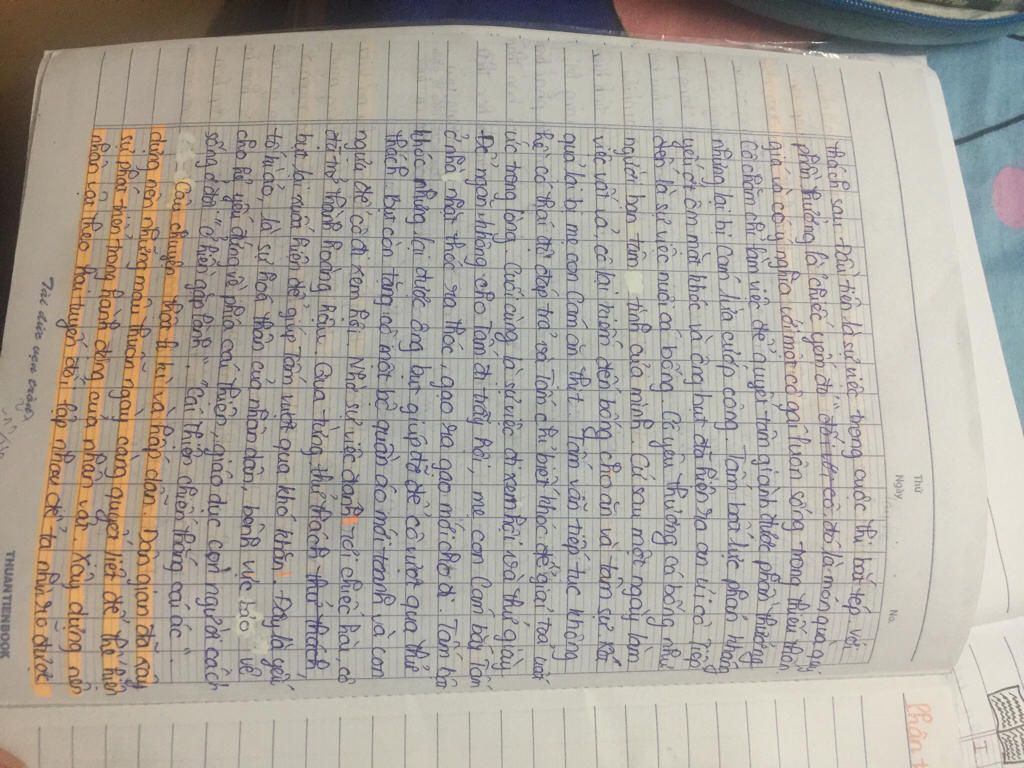 Thứ
Ngày
No.
thách sau. Đầu tiên là sự việc trong cuộc thi bắt tép với
phần thưởng là chiếc yếm đỏ. cô đó là món quà quý
giá và có ý nghĩa với một cô gái luôn sống trong thiếu thốn.
Cô chăm chỉ làm việc để quyết tâm giành được phần thưởng
nhưng lại bị Cám lừa cướp công. Tấm bất lực phản kháng
yếu ớt ôm mặt khóc và ông bụt đã hiện ra an ủi cô. Tiếp
đến là sự việc nuôi cá bống. Cô yêu thương cá bống như
người bạn tâm tình của mình. Cứ sau một ngày làm
việc vất vả cô lại kiếm đến bống cho ăn và tâm sự. Kết
quả lại bị mẹ con Cám ăn thịt. Tấm vẫn tiếp tục không
hề có thái độ đáp trả số Tấm chỉ biết khóc để giải toả uất
ức trong lòng. Cuối cùng là sự việc đi xem hội và thử giày
Để ngăn không cho Tấm đi trẩy hội, mẹ con Cám bắt Tấm
ở nhà nhặt thóc ra thóc, gạo ra gạo mới cho đi. Tấm bật
khóc nhưng lại được ông bụt giúp đỡ để cô vượt qua thử
thách. Bụt còn tặng cô một bộ quần áo mới toanh và con
ngựa để cô đi xem hội. Nhờ sự việc đánh rơi chiếc hài cô
đã trở thành hoàng hậu. Qua từng thử thách thử thách,
bụt lại xuất hiện để giúp Tấm vượt qua khó khăn. Đây là yếu
tố kì ảo, là sự hoá thân của nhân dân, bênh vực bảo vệ
cho kẻ yếu đứng về phía cái thiện, giáo dục con người cách
sống ở đời "ở hiền gặp lành", "cái thiện chiến thắng cái ác".
Câu chuyện thật li kì và hấp dẫn. Dân gian đã xây
dựng nên những mâu thuẫn ngày càng quyết liệt để thể hiện
sự phát triển trong hành động của nhân vật. Xây dựng nên
nhân vật theo hai tuyến đối lập nhau để ta nhìn rõ được
THUANTIENBOOK
Phân t
I